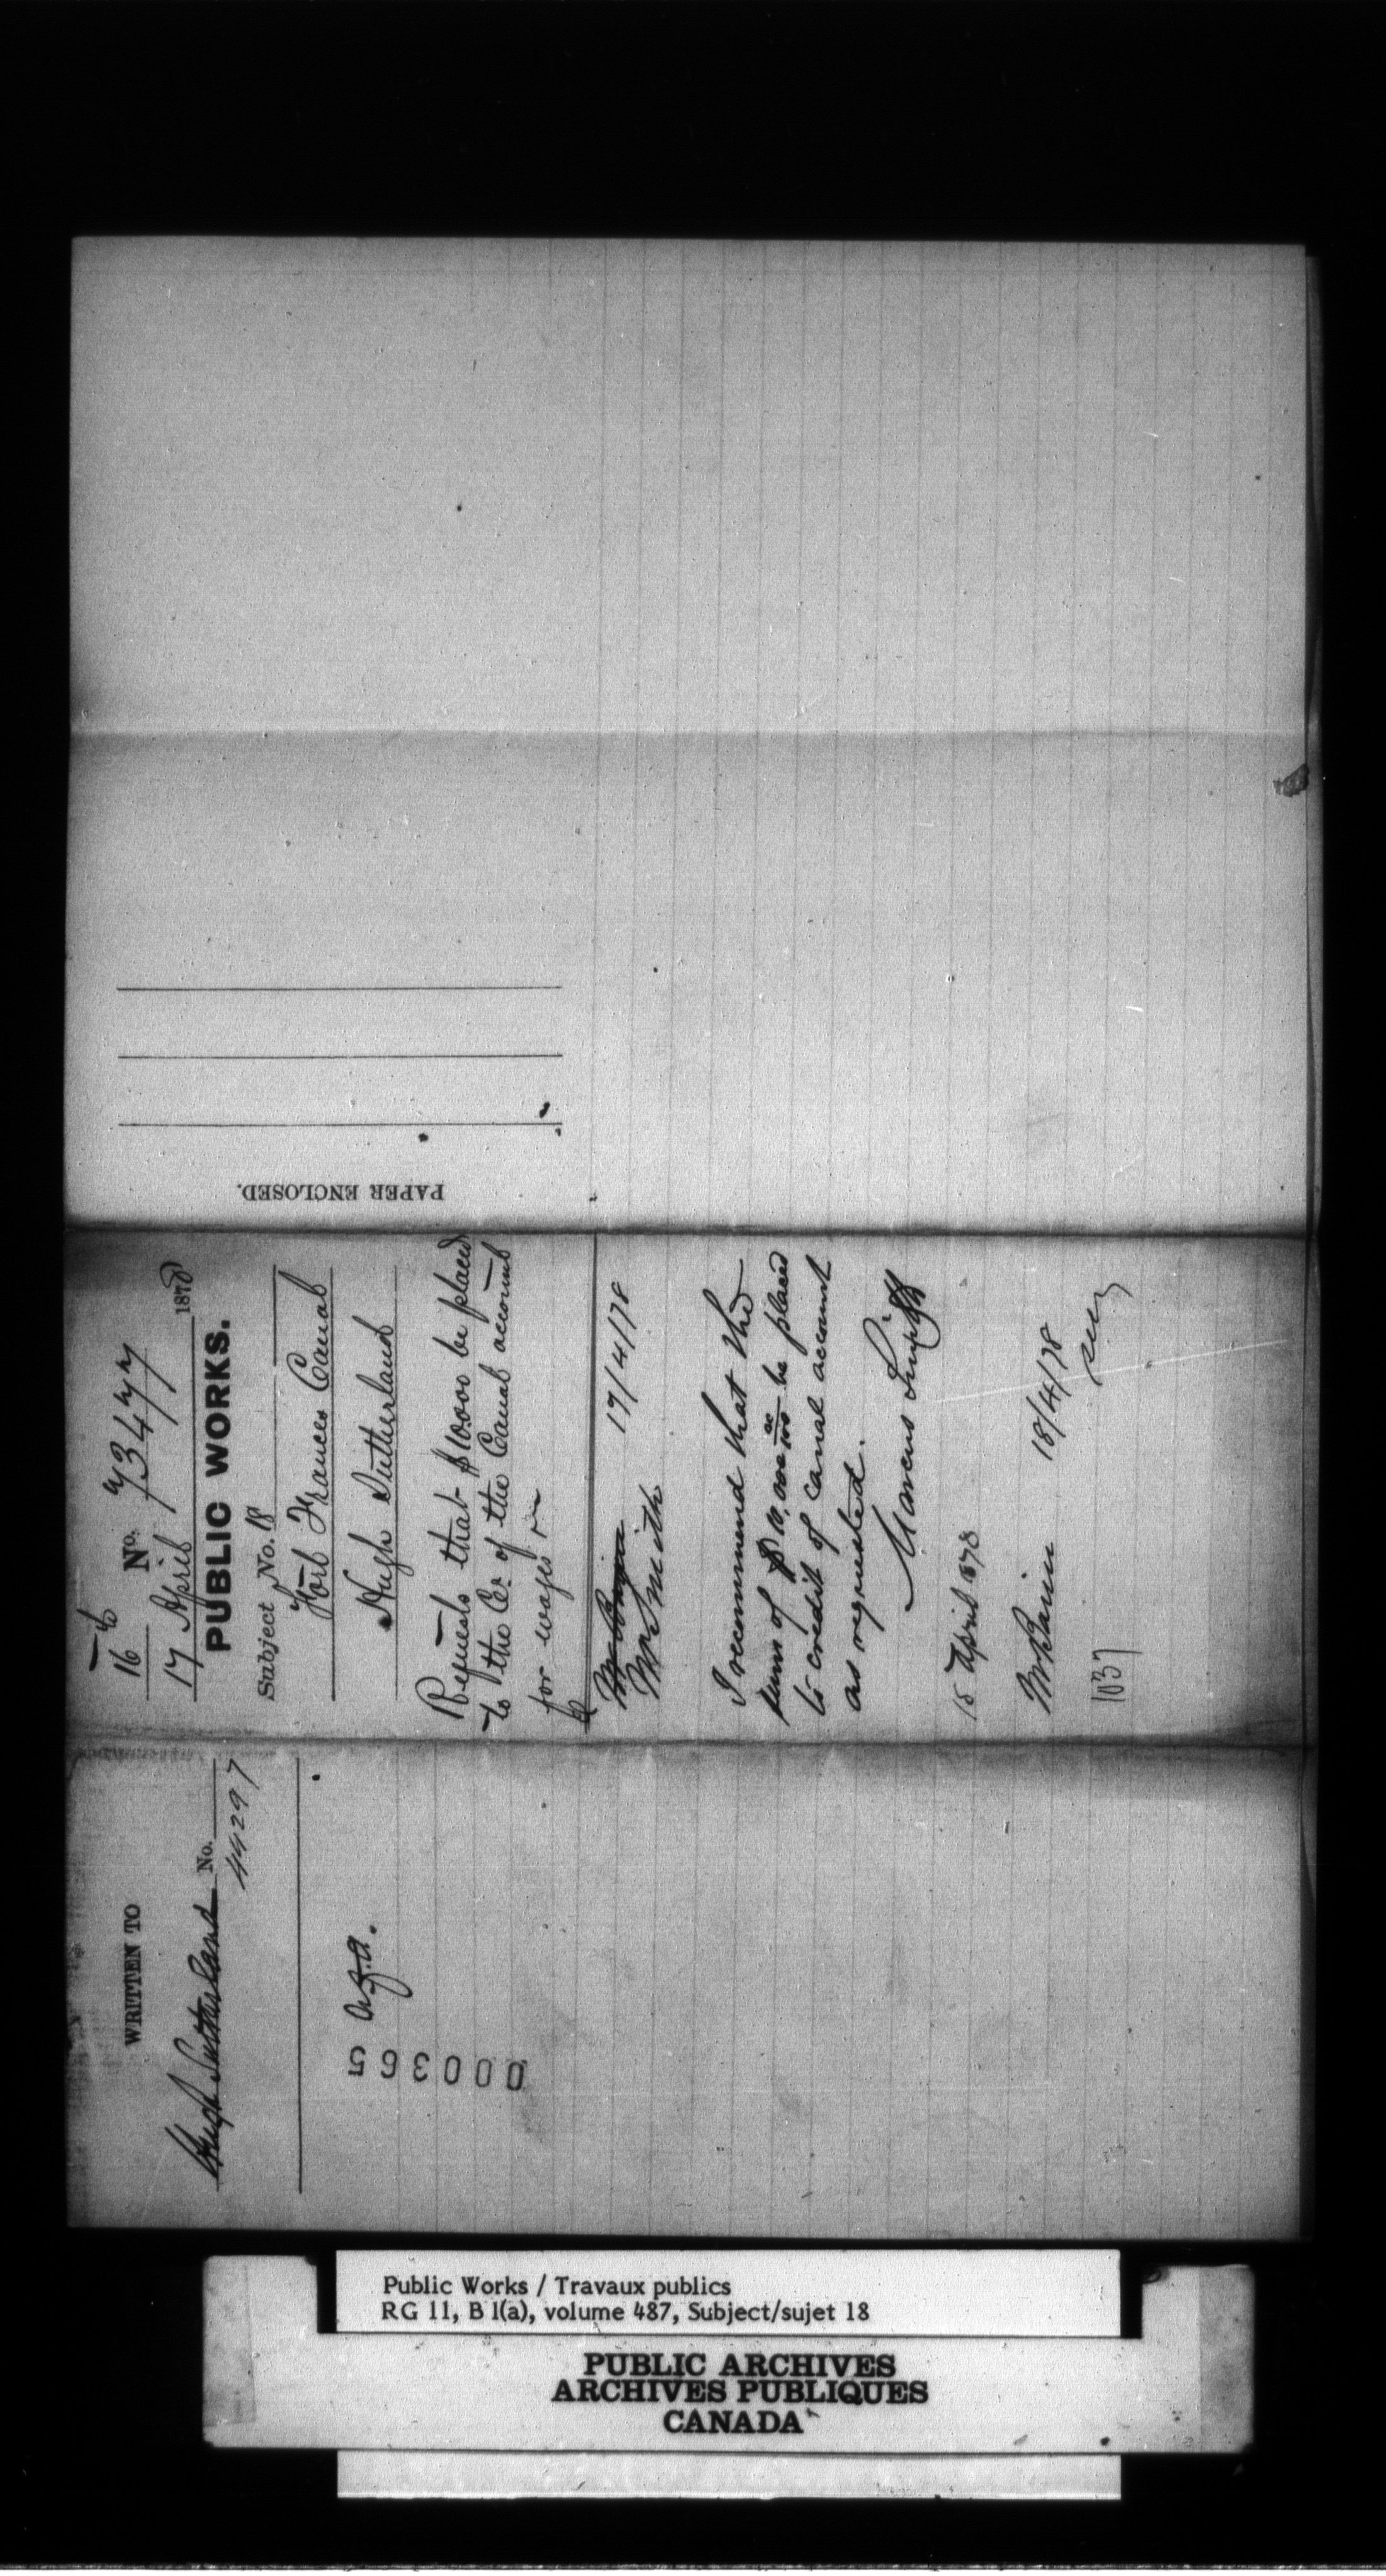 16th No. 73477
17 April 1878
PUBLIC WORKS.
Subject No. 18
Fort Frances Canal
Hugh Sutherland
Requests that $10000 be placed
to the Cr. of the Canal account
for wages
Mr Smith 17/4/78
I recommend that the
sum of $10,000 be placed
to credit of canal account
as requested.
Marcus Smith
18 April 1878
Mr Bain 18/4/78
1037
PAPER ENCLOSED.
WRITTEN TO
Hugh Sutherland No.
44297
000365
Public Works / Travaux publics
RG 11, B 1(a), volume 487, Subject/sujet 18
PUBLIC ARCHIVES
ARCHIVES PUBLIQUES
CANADA